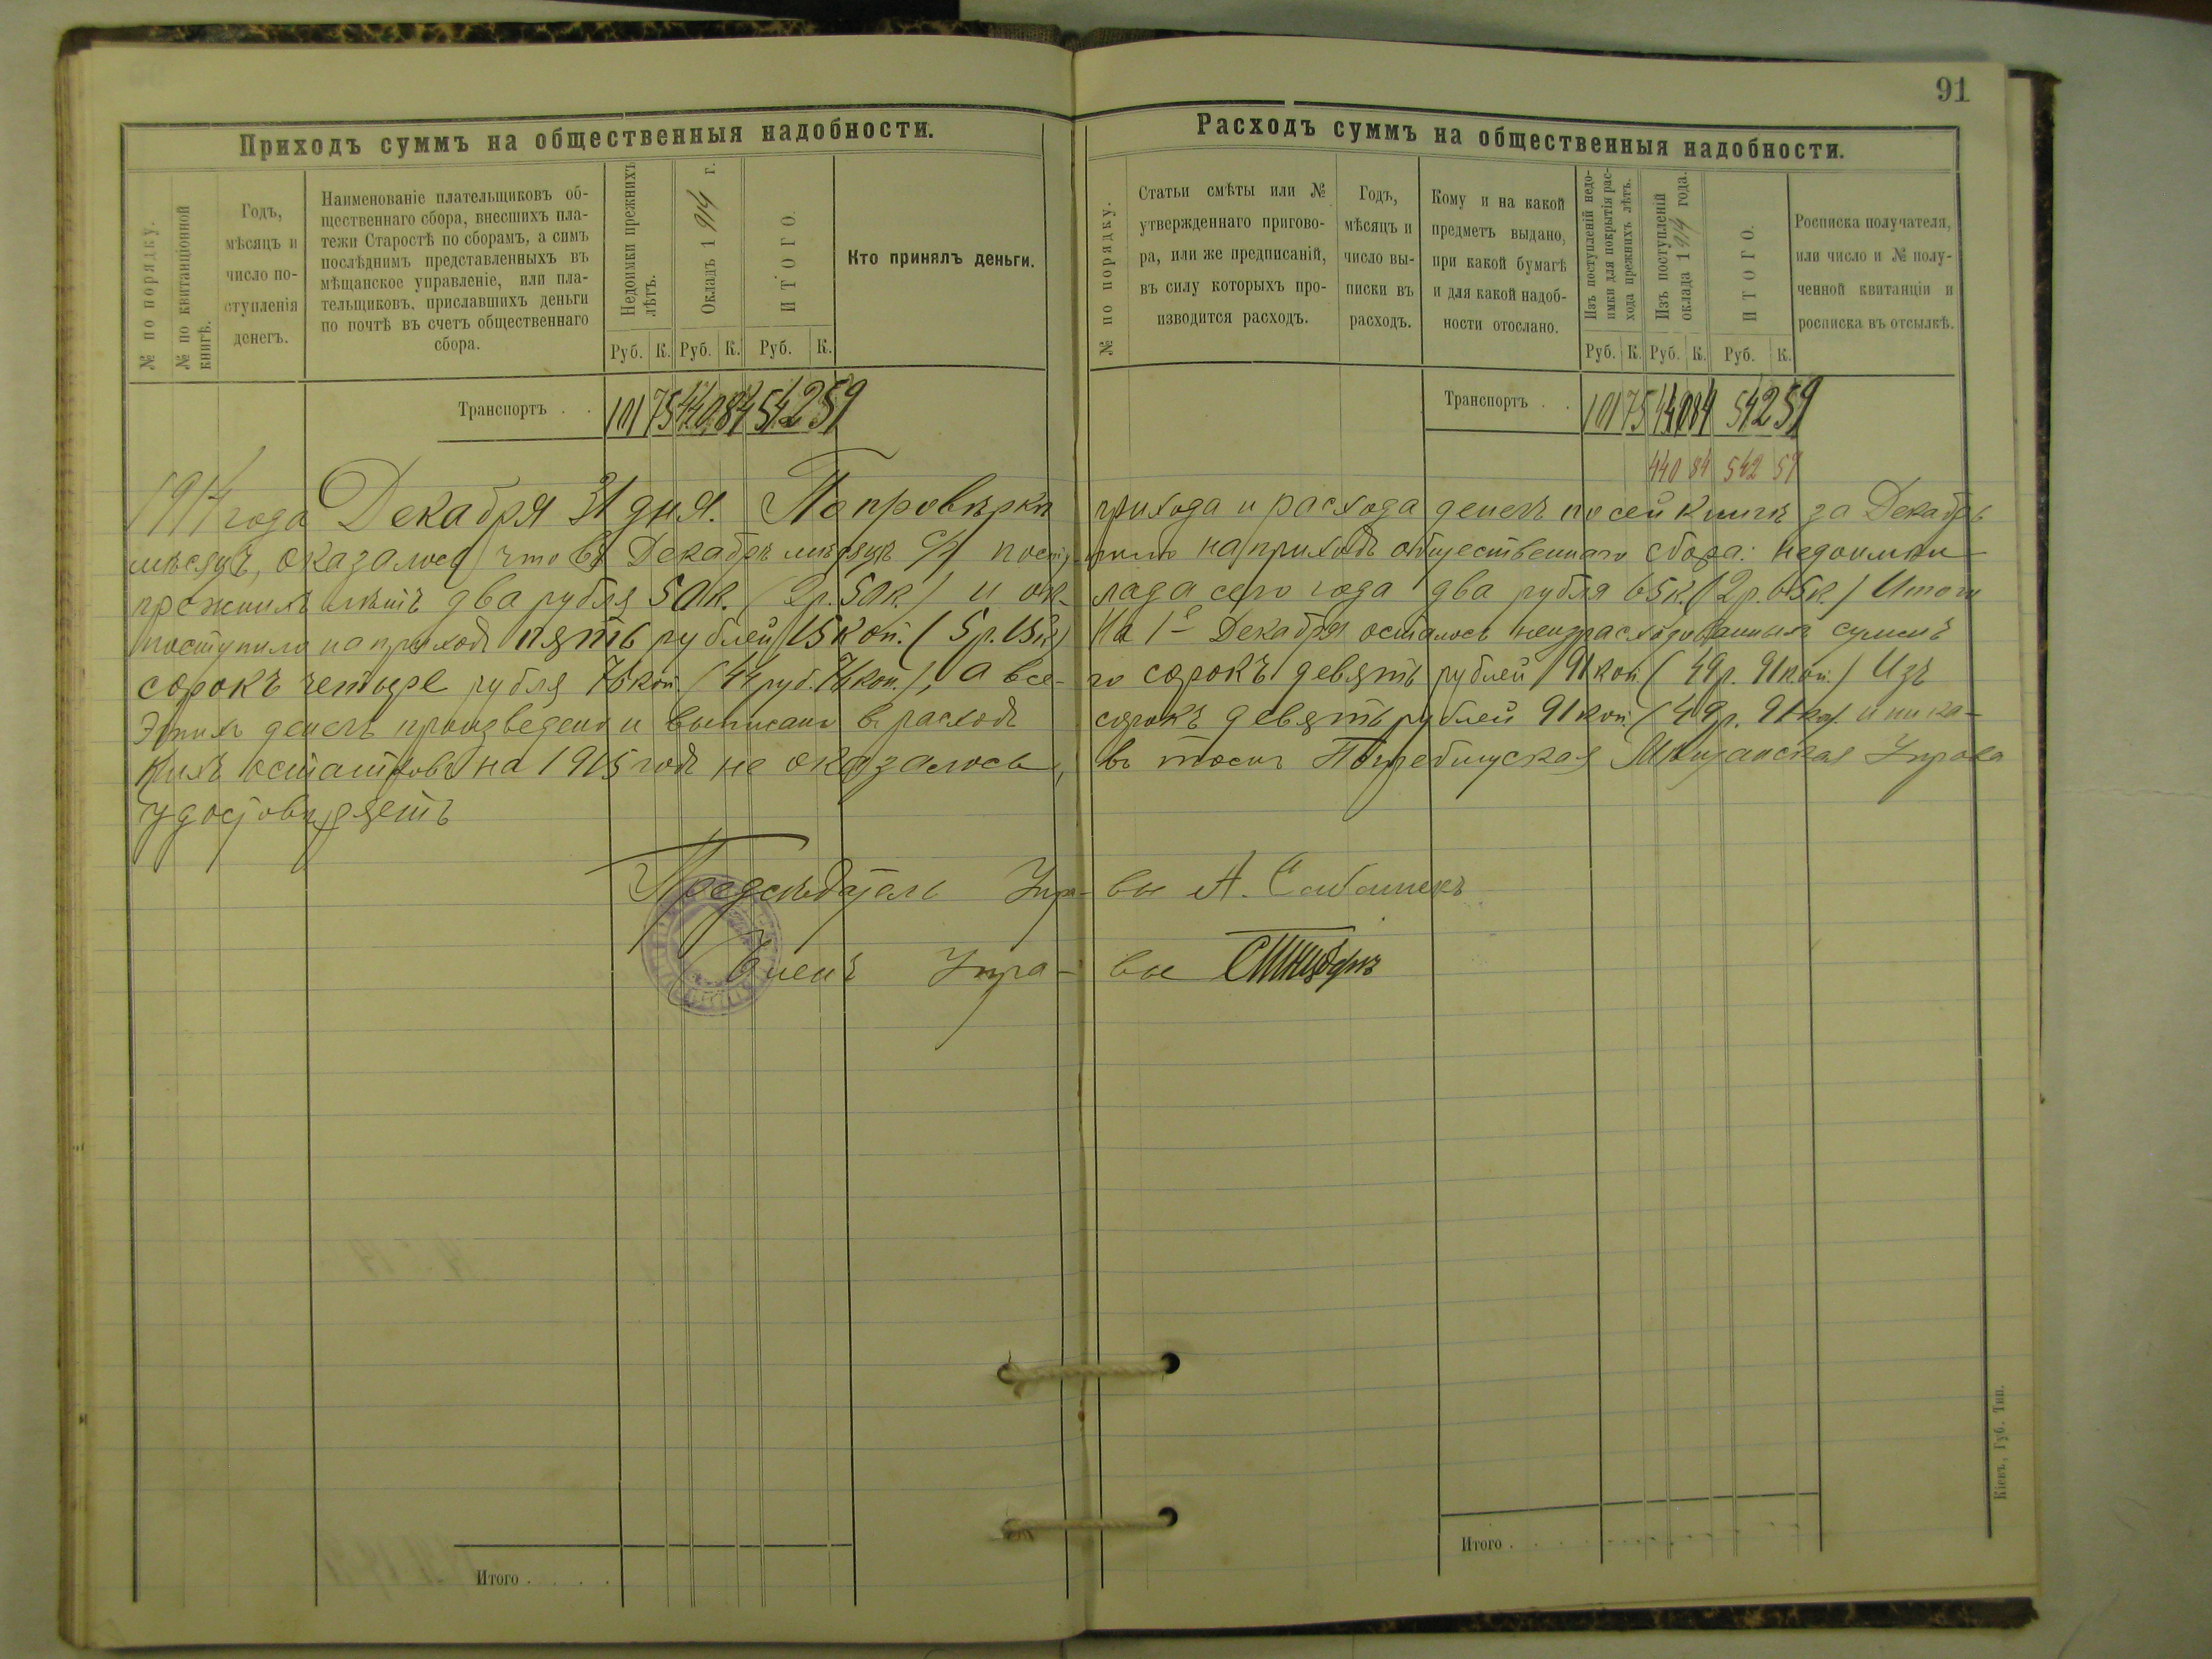 91
Приходъ суммъ на общественныя надобности.
№ по порядку.
№ по квитанціонной
книгѣ.
Годъ,
мѣсяцъ и
число по-
ступленія
денегъ.
Наименованіе плательщиковъ об-
щественнаго сбора, внесшихъ пла-
тежи Старостѣ по сборамъ, а симъ
послѣднимъ представленныхъ въ
мѣщанское управленіе, или пла-
тельщиковъ, приславшихъ деньги
по почтѣ въ счетъ общественнаго
сбора.
Недоимки прежнихъ
лѣтъ.
Окладъ 1914 г.
ИТОГО.
Кто принялъ деньги.
Руб. К. Руб. К. Руб. К.
Транспортъ . . 101 75 440 84 542 59
Расходъ суммъ на общественныя надобности.
№ по порядку.
Статьи смѣты или №
утвержденнаго пригово-
ра, или же предписаній,
въ силу которыхъ про-
изводится расходъ.
Годъ,
мѣсяцъ и
число вы-
писки въ
расходъ.
Кому и на какой
предметъ выдано,
при какой бумагѣ
и для какой надоб-
ности отослано.
Изъ поступленій недо-
имки для покрытія рас-
хода прежнихъ лѣтъ.
Изъ поступленій
оклада 1914 года.
ИТОГО.
Росписка получателя,
или число и № полу-
ченной квитанціи и
росписка въ отсылкѣ.
Руб. К. Руб. К. Руб. К.
Транспортъ . . 101 75 440 84 542 59
440 84 542 59
1914 года Декабря 31 дня. По провѣрки прихода и расхода денегъ по сей книгѣ за Декабрь
мѣсяцъ, оказалось что въ Декабрѣ мѣсяцѣ с/г поступило на приходъ общественнаго сбора: недоимки
прежнихъ лѣтъ два рубля 50 к. (2 р. 50 к.) и ок- лада сего года два рубля 65 к. (2 р. 65 к.) Итого
поступило на приходъ пять рублей 15 коп. (5 р. 15 к.) На 1е Декабря осталось неизрасходованныхъ суммъ
сорокъ четыре рубля 76 коп. (44 руб. 76 коп.), а все- го сорокъ девять рублей 91 коп. (49 р. 91 коп.) Изъ
этихъ денегъ произведено и выписано въ расходъ сорокъ девять рублей 91 коп. (49 р. 91 ко). и ника-
кихъ остатковъ на 1915 годъ не оказалось, въ томъ Погребищская Мѣщанская Управа
удостовѣряетъ
Предсѣдатель Упра- вы А.
Членъ Упра- вы
Итого . . . .
Итого . . . .
Кіевъ, Губ. Тип.